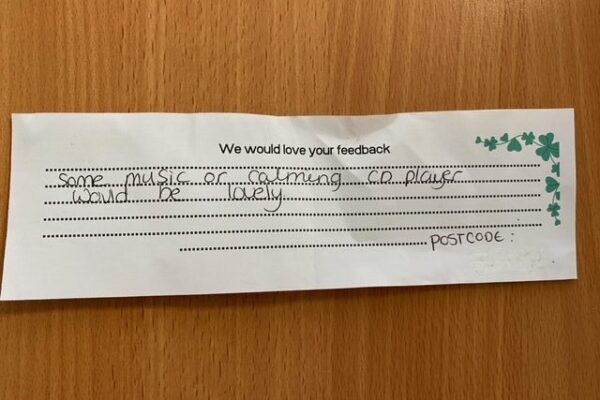 We would love your feedback
some music or calming CD player
would be lovely
POSTCODE: